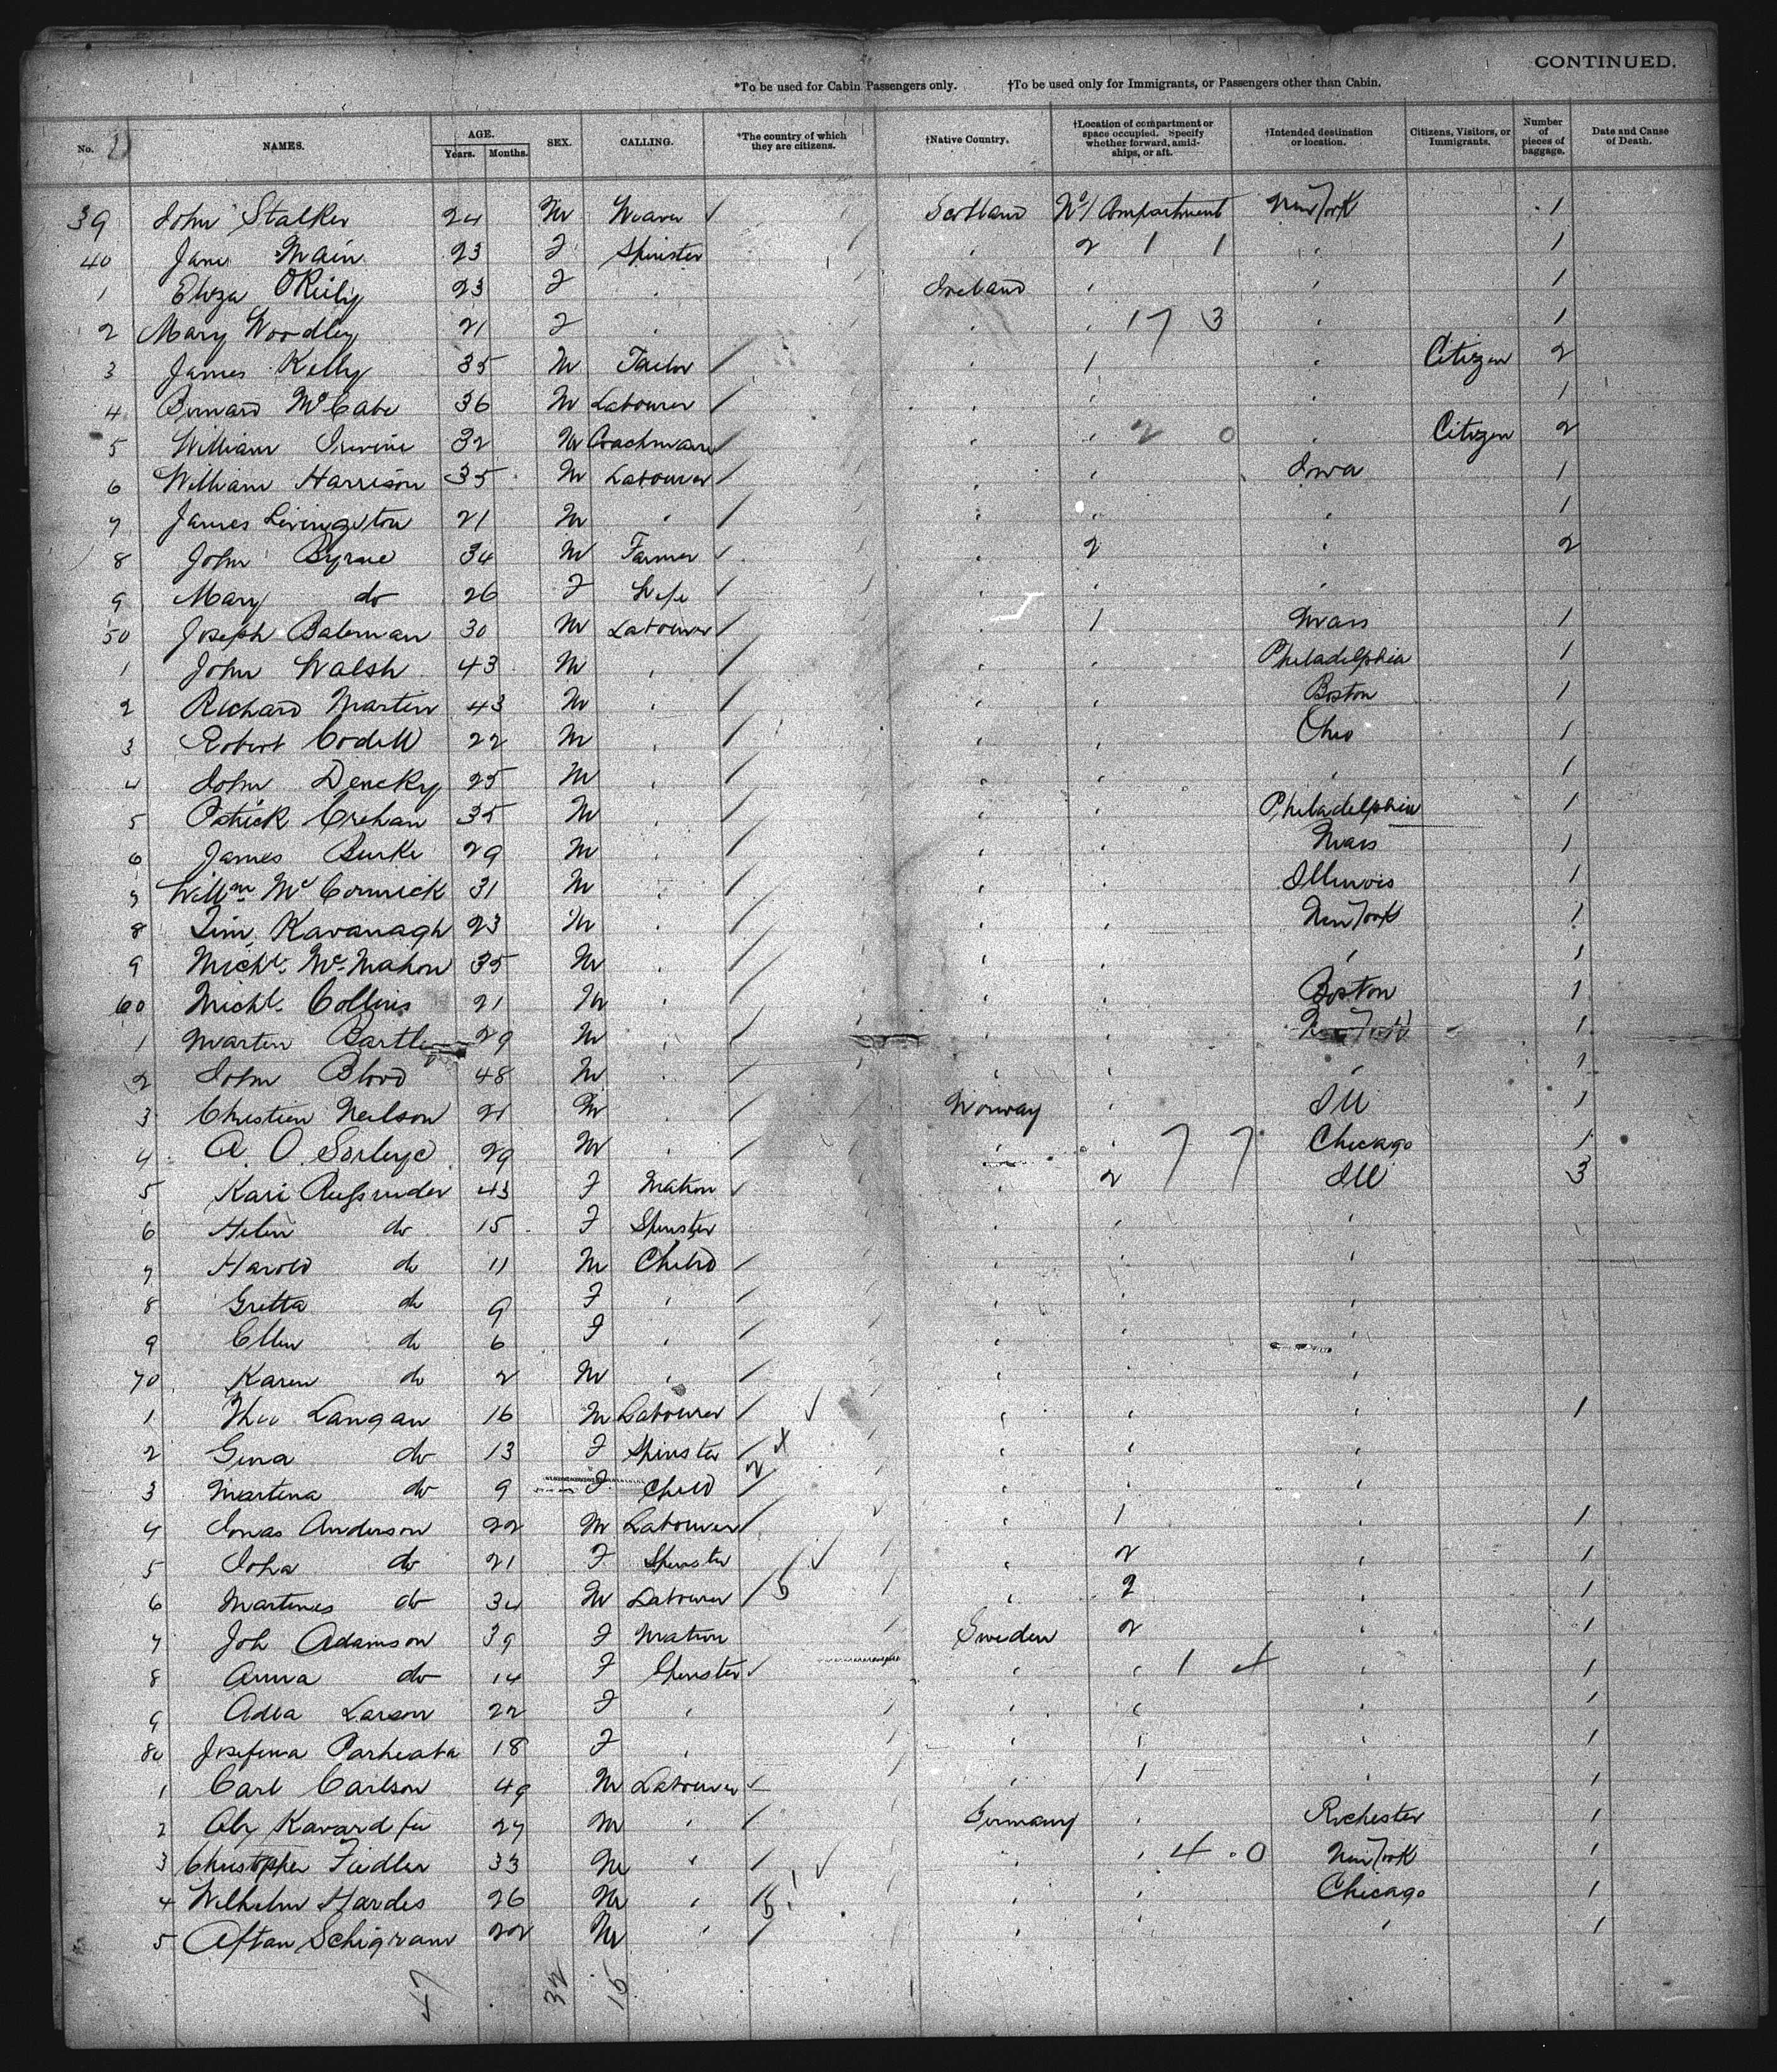 CONTINUED.
*To be used for Cabin Passengers only. †To be used only for Immigrants, or Passengers other than Cabin.
No. 2 NAMES. AGE. Years. Months. SEX. CALLING. *The country of which they are citizens. †Native Country. †Location of compartment or space occupied. Specify whether forward, amidships, or aft. †Intended destination or location. Citizens, Visitors, or Immigrants. Number of pieces of baggage. Date and Cause of Death.
39 John Stalker 24 M Weaver Scotland No 1 Compartment New York 1
40 Jane Main 23 F Spinster " 2 1 1 " 1
1 Eliza O'Reily 23 F " Ireland " " 1
2 Mary Woodley 21 F " " " 17 3 " 1
3 James Kelly 35 M Tailor " 1 " Citizen 2
4 Bernard McCabe 36 M Labourer " " " 1
5 William Irvine 32 M Coachman " " 2 0 " Citizen 2
6 William Harrison 35 M Labourer " " Iowa 1
7 James Livingston 21 M " " " " 1
8 John Byrne 34 M Farmer " 2 " 2
9 Mary do 26 F Wife " " "
50 Joseph Bateman 30 M Labourer " 1 Mass 1
1 John Walsh 43 M " " " Philadelphia 1
2 Richard Martin 43 M " " " Boston 1
3 Robert Codell 22 M " " " Ohio 1
4 John 25 M " " " " 1
5 Patrick Crehan 35 M " " " Philadelphia 1
6 James Burke 29 M " " " Mass 1
7 Willm McCormick 31 M " " " Illinois 1
8 Tim Kavanagh 23 M " " " New York 1
9 Michl McMahon 35 M " " " " 1
60 Michl Collins 21 M " " " Boston 1
1 Martin Bartley 29 M " " " New York 1
2 John Blood 48 M " " " " 1
3 Christien Neilson 21 M " Norway " Ill 1
4 A. O. 29 M " " " 7 7 Chicago 1
5 Kari 43 F Matron " 2 Ill 3
6 Helen do 15 F Spinster " " "
7 Harold do 11 M Child " " "
8 Gritta do 9 F " " " "
9 Ellen do 6 F " " " "
70 Karen do 2 M " " " "
1 Langan 16 M Labourer " " " 1
2 Gina do 13 F Spinster " " "
3 Martina do 9 F Child " " "
4 Jonas Anderson 22 M Labourer " 1 " 1
5 Joha do 21 F Spinster " 2 " 1
6 Martines do 34 M Labourer " 2 " 1
7 Joh Adamson 39 F Matron Sweden 2 " 1
8 Anna do 14 F Spinster " " 1 4 " 1
9 Adla Larson 22 F " " " " 1
80 Josefina 18 F " " " " 1
1 Carl Carlson 49 M Labourer " 1 " 1
2 27 M " Germany " Rochester 1
3 Christopher Fiedler 33 M " " " 4 0 New York 1
4 Wilhelm Hardes 26 M " " " Chicago 1
5 Schigram 22 M " " " " 1
47 32 15